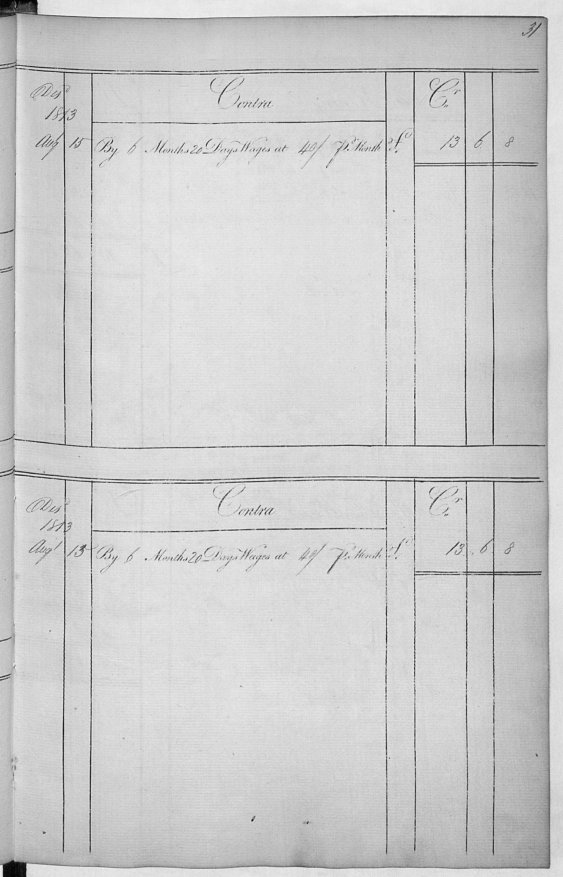 31
Contra Cr
1813
Augt 15 By 6 Months 20 Days Wages at 40/ Pr. Month £ 13 6 8
Contra Cr
1813
Augt 13 By 6 Months 20 Days Wages at 40/ Pr. Month £ 13 6 8